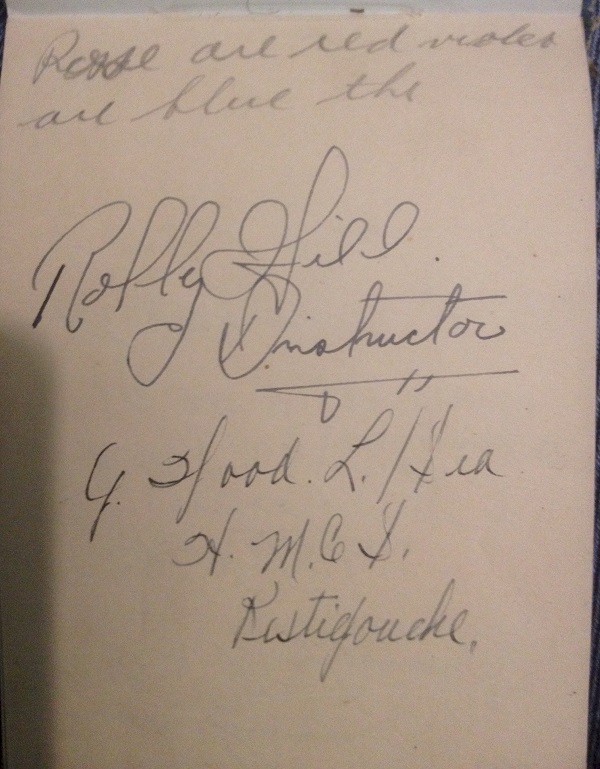 Rose are red violes
are blue the
Rolly Hill.
Instructor
G. Hood. L./Sea
H.M.C.S.
Restigouche.